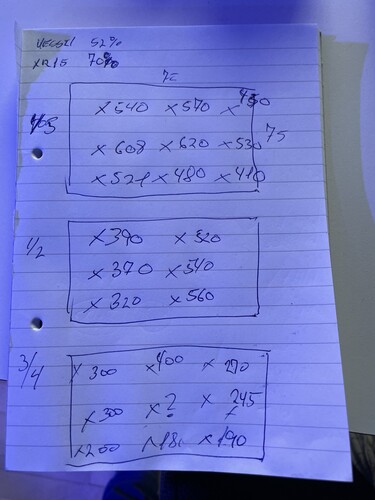 52%
XR15 70%
x540 x570 x450
75
x608 x620 x530
x521 x480 x410
1/2
x390 x520
x370 x540
x320 x560
3/4
x300 x400 x270
x300 x? x245
x200 x18 x190